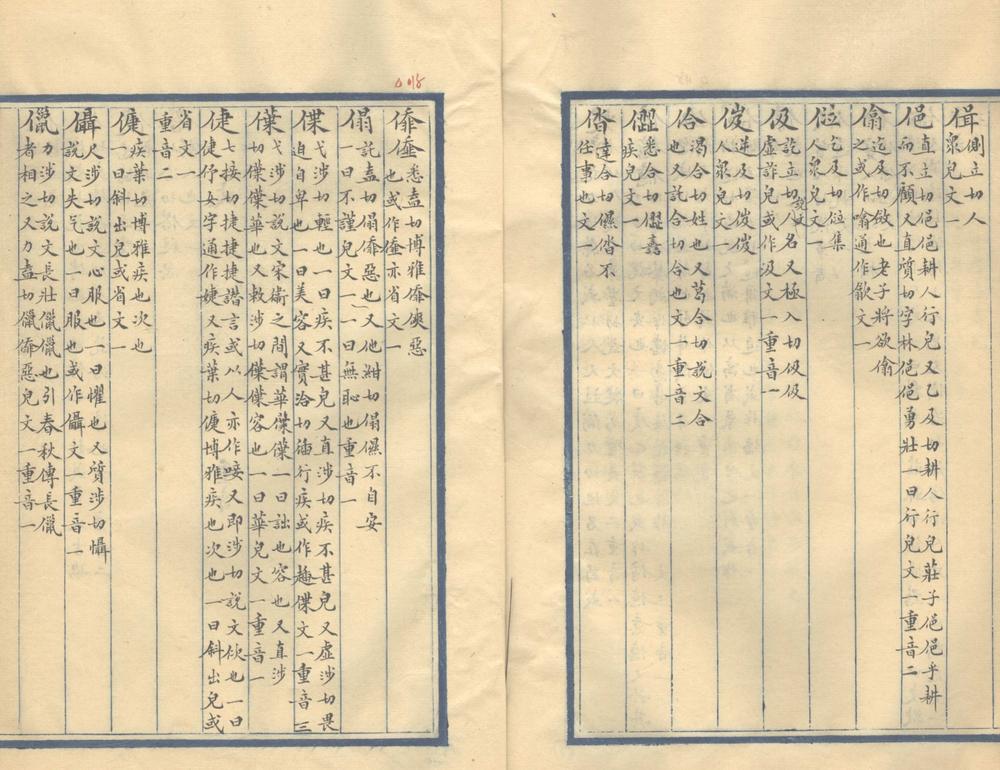 偮側立切人
衆皃文一
俋直立切俋俋耕人行皃又乙及切耕人行皃莊子俋俋乎耕
而不顧又直質切字林俋俋勇壯一曰行皃文一重音二
偷迄及切斂也老子將欲偷
之或作噏通作歙文一
㑙乞及切㑙集
人衆皃文一
伋訖立切人名又極入切伋伋
虛詐皃或作汲文一重音一
㑊逆及切
人衆皃文一
佮渴合切姓也又葛合切說文合
也又託合切合也文一重音二
悉合切
疾皃文一
㒓達合切儑㒓不
任事也文一
悉盍切博雅傝傸惡
也或作亦省文一
傝託盍切傝惡也又他紺切傝儑不自安
一曰不謹皃文一一曰無恥也重音一
偞弋涉切輕也一曰疾不甚皃又直涉切疾不甚皃又虛涉切畏
迫自卑也一曰美容又實洽切行疾或作偞文一重音三
僷弋涉切說文宋衞之間謂華僷僷一曰詘也容也又直涉
切僷僷華也又敕涉切僷僷容也一曰華皃文一重音一
倢七接切捷捷譖言或以人亦作唼又即涉切說文佽也一曰
倢伃女字通作婕又疾葉切倢博雅疾也次也一曰斜出皃或
省文一
重音二
疾葉切博雅疾也次也
一曰斜出皃或省文一
㒤尺涉切說文心服也一曰懼也又質涉切懾
說文失气也一曰服也或作㒤文一重音一
儠力涉切說文長壯儠儠也引春秋傳長儠
者相之又力盍切儠傝惡皃文一重音一